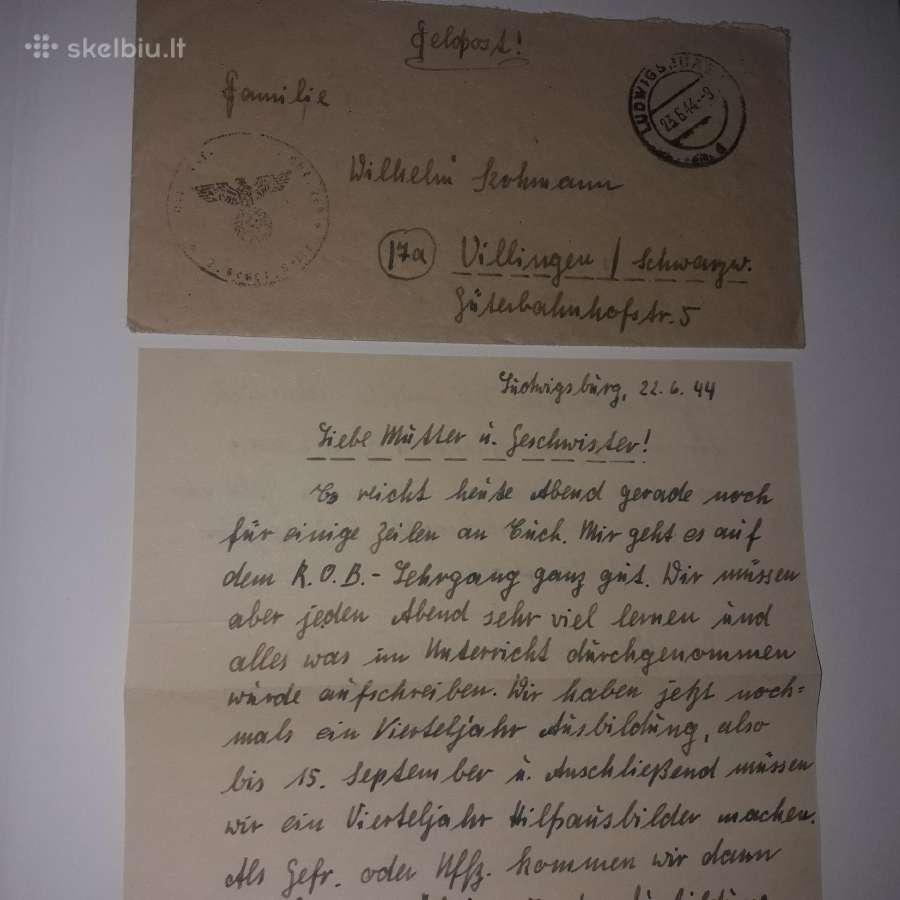 skelbiu.lt
Feldpost!
Familie
LUDWIGSBURG
23.6.44.-9
Wilhelm
17a Villingen / Schwarzw.
Güterbahnhofstr. 5
Ludwigsburg, 22.6.44
Liebe Mutter u. Geschwister!
Es reicht heute Abend gerade noch
für einige Zeilen an Euch. Mir geht es auf
dem R.O.B.-Lehrgang ganz gut. Wir müssen
aber jeden Abend sehr viel lernen und
alles was im Unterricht durchgenommen
wurde aufschreiben. Wir haben jetzt noch=
mals ein Vierteljahr Ausbildung, also
bis 15. September u. Anschließend müssen
wir ein Vierteljahr Hilfsausbilder machen.
Als Gefr. oder Uffz. kommen wir dann